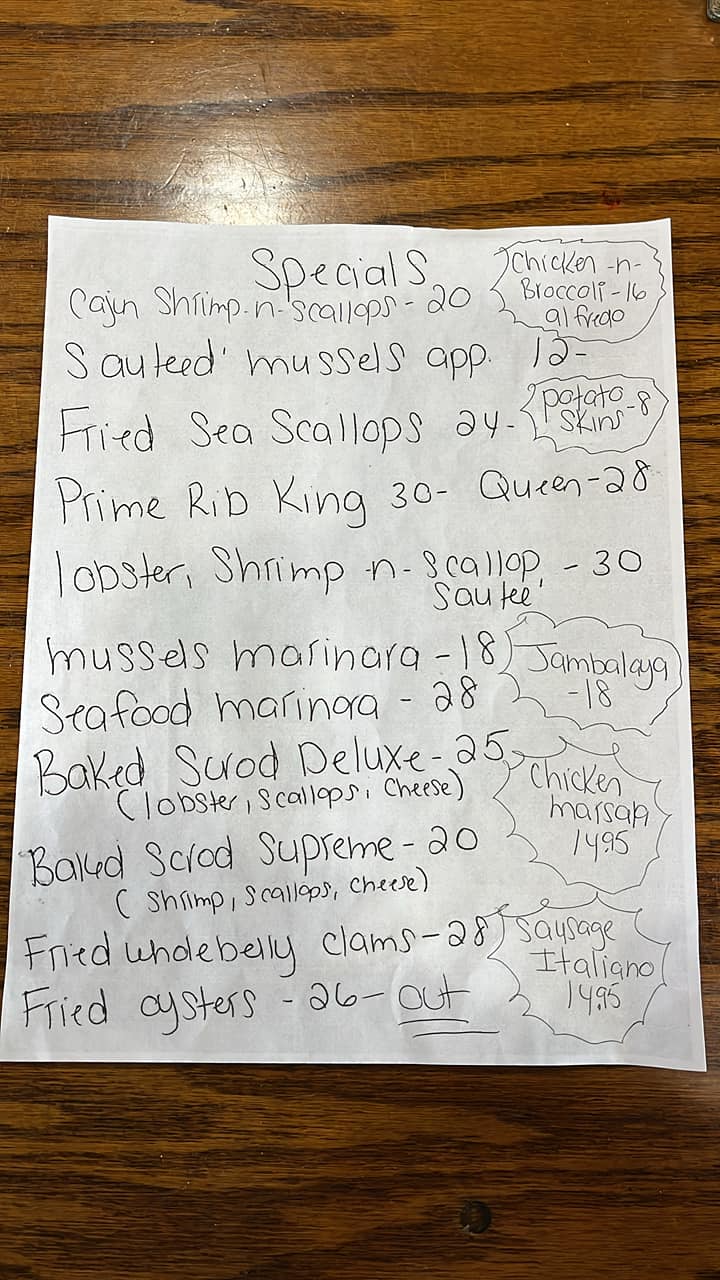 Specials
Cajun Shrimp-n-Scallops - 20
Chicken -n-
Broccoli - 16
alfredo
Sauteed' mussels app. 12-
Fried Sea Scallops 24-
potato
Skins - 8
Prime Rib King 30- Queen - 28
lobster, Shrimp -n- Scallop - 30
Sautee
mussels marinara - 18
Jambalaya
- 18
Seafood marinara - 28
Baked Scrod Deluxe - 25
(lobster, scallops, cheese)
Chicken
marsala
14.95
Baked Scrod Supreme - 20
(Shrimp, scallops, cheese)
Fried wholebelly clams - 28
Sausage
Italiano
14.95
Fried oysters - 26 - out